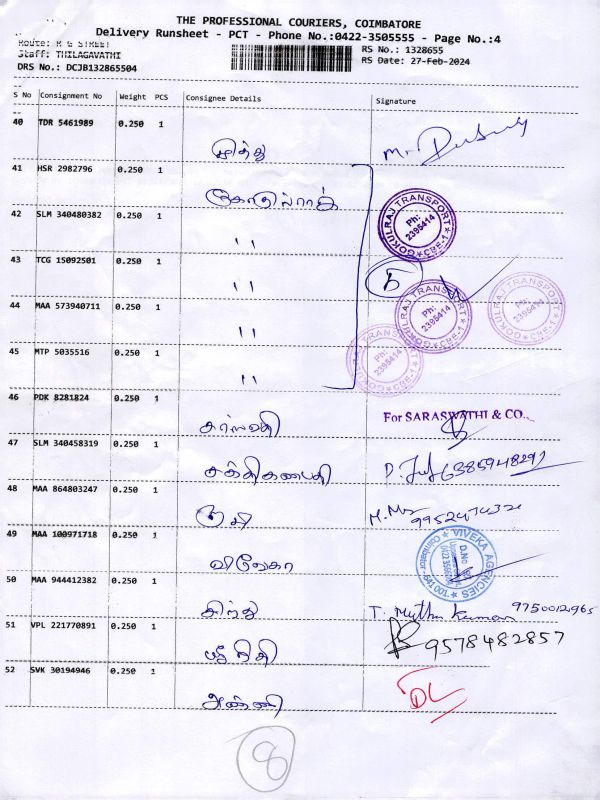 THE PROFESSIONAL COURIERS, COIMBATORE
Delivery Runsheet - PCT - Phone No.:0422-3505555 - Page No.:4
Route: R G STREET
Staff: THILAGAVATHI
DRS No.: DCJB132865504
RS No.: 1328655
RS Date: 27-Feb-2024
S No Consignment No Weight PCS Consignee Details Signature
40 TDR 5461989 0.250 1
முத்து
41 HSR 2982796 0.250 1
கோகுல்ராஜ்
GOKULRAJ TRANSPORT
Ph: 2395414
CBE-1
42 SLM 340480382 0.250 1
''
43 TCG 15092501 0.250 1
''
5
GOKULRAJ TRANSPORT
Ph: 2395414
CBE-1
GOKULRAJ TRANSPORT
Ph: 2395414
CBE-1
44 MAA 573940711 0.250 1
''
GOKULRAJ TRANSPORT
Ph: 2395414
CBE-1
45 MTP 5035516 0.250 1
''
46 PDK 8281824 0.250 1
சரஸ்வதி
For SARASWATHI & CO.,
47 SLM 340458319 0.250 1
சக்திகணபதி
6385948291
48 MAA 864803247 0.250 1
ரவி
9952474321
49 MAA 100971718 0.250 1
விவேகா
VIVEKA AGENCIES
D.No
Coimbatore-641 001.
50 MAA 944412382 0.250 1
சிந்து
T. Muthu kumar 9750012965
51 VPL 221770891 0.250 1
ஸ்ரீ நிதி
9578482857
52 SVK 30194946 0.250 1
அண்ணி
DL
8